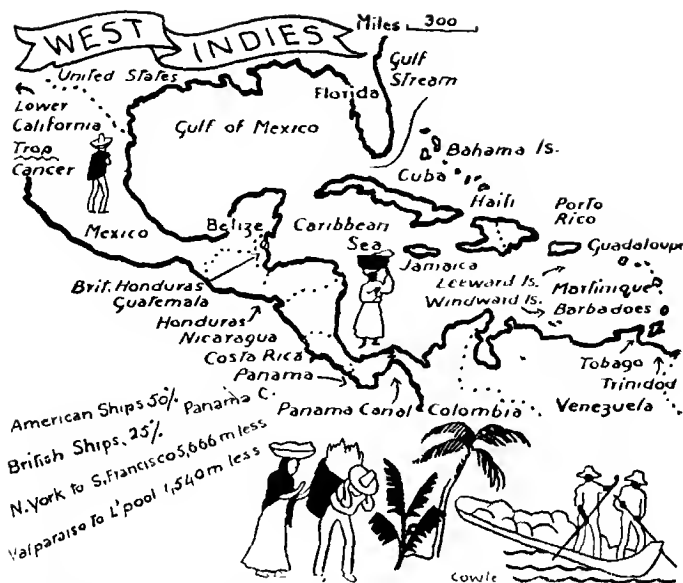 WEST INDIES
Miles 300
Gulf
Stream
United States
Florida
Lower
California
Trop
Cancer
Gulf of Mexico
Bahama Is.
Cuba
Haiti
Porto
Rico
Mexico
Belize
Caribbean
Sea
Jamaica
Guadaloupe
Leeward Is.
Martinique
Windward Is.
Barbadoes
Brit. Honduras
Guatemala
Honduras
Nicaragua
Costa Rica
Panama
Panama Canal
Colombia
Venezuela
Tobago
Trinidad
American Ships 50% Panama C.
British Ships, 25%
N. York to S. Francisco 5,666 m less
Valparaiso to L'pool 1,540 m less
Cowle